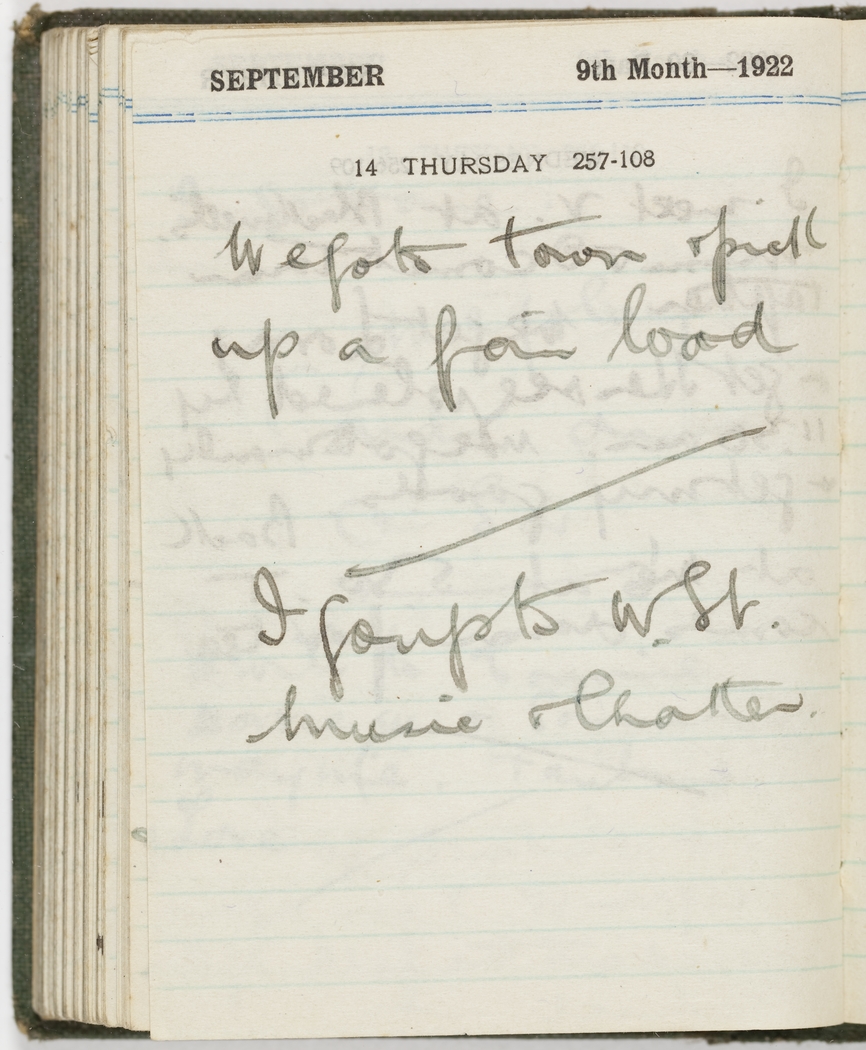 SEPTEMBER 9th Month—1922
14 THURSDAY 257-108
We go to town & pick
up a fair load
I go up to W. St.
Music & Chatter.